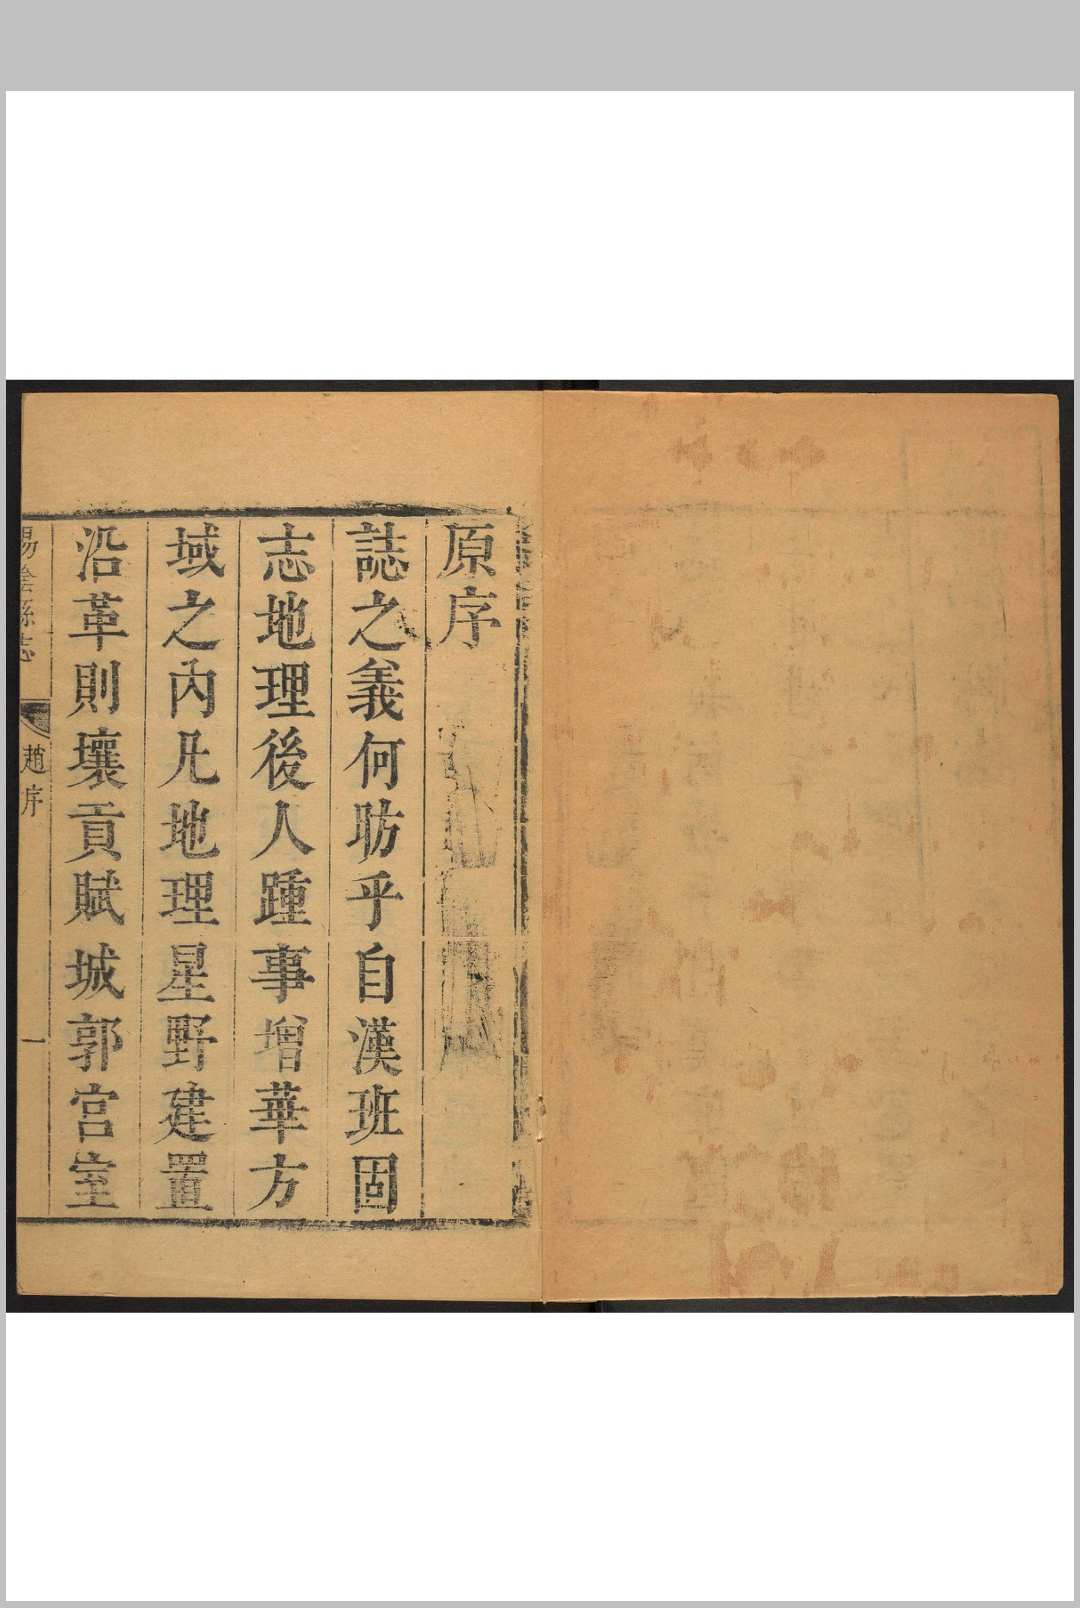 原序
誌之義何昉乎自漢班固
志地理後人踵事增華方
域之内凡地理星野建置
沿革則壤貢賦城郭宫室
湯陰縣志
趙序
一